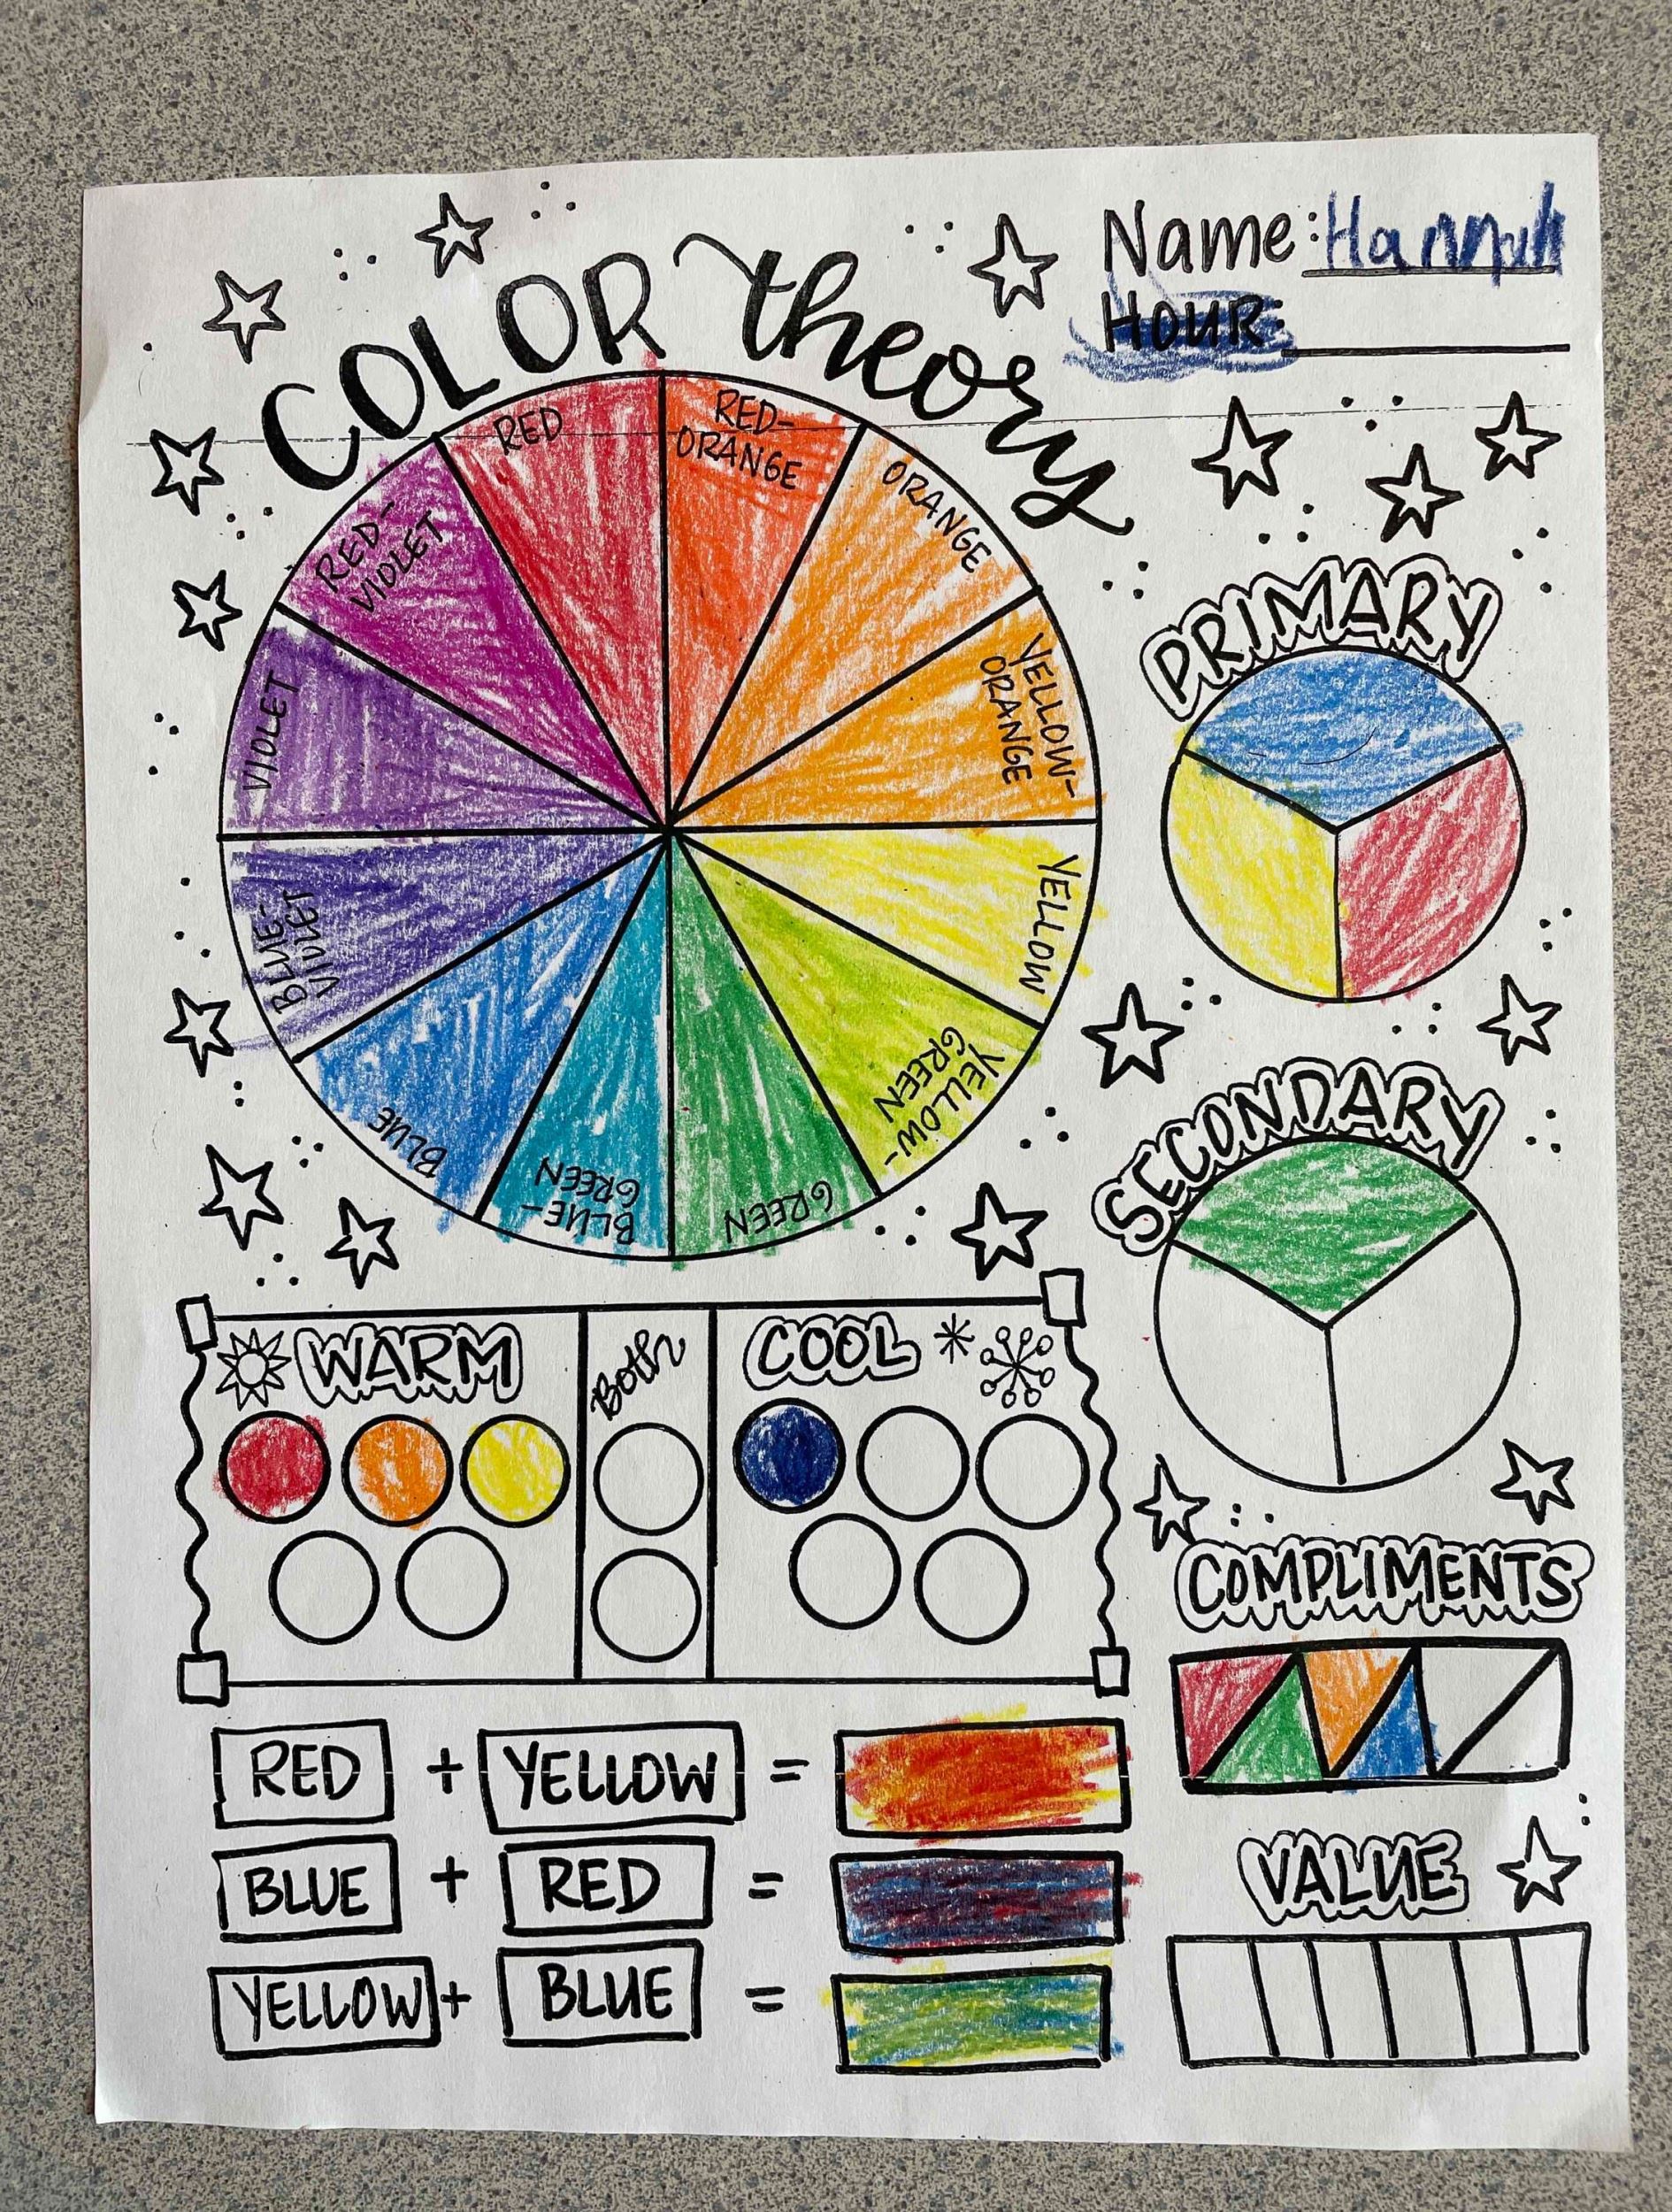 Name: Hannah
HOUR:
COLOR theory
RED
RED-
ORANGE
ORANGE
YELLOW-
ORANGE
YELLOW
YELLOW-
GREEN
GREEN
BLUE-
GREEN
BLUE
BLUE-
VIOLET
VIOLET
RED-
VIOLET
PRIMARY
SECONDARY
WARM
BOTH
COOL
COMPLIMENTS
RED + YELLOW =
BLUE + RED =
YELLOW + BLUE =
VALUE